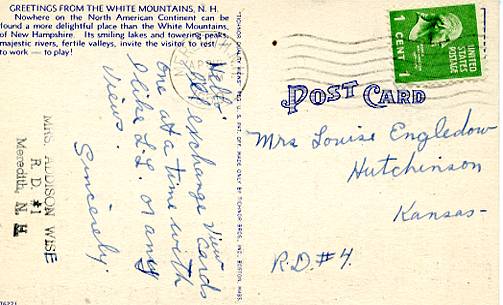 GREETINGS FROM THE WHITE MOUNTAINS, N. H.
Nowhere on the North American Continent can be
found a more delightful place than the White Mountains,
of New Hampshire. Its smiling lakes and towering peaks,
majestic rivers, fertile valleys, invite the visitor to rest
to work — to play!
Hello
Will exchange view
cards
one at a time with
I like L.L. or any
views.
Sincerely
MRS. ADDISON WISE
R. D. #1
Meredith, N. H
76221
"TICHNOR QUALITY VIEWS," REG. U. S. PAT. OFF. MADE ONLY BY TICHNOR BROS., INC., BOSTON, MASS.
POST CARD
1 CENT 1
UNITED
STATES
POSTAGE
Mrs Louise Engledow
Hutchinson
Kansas-
R.D. #4.